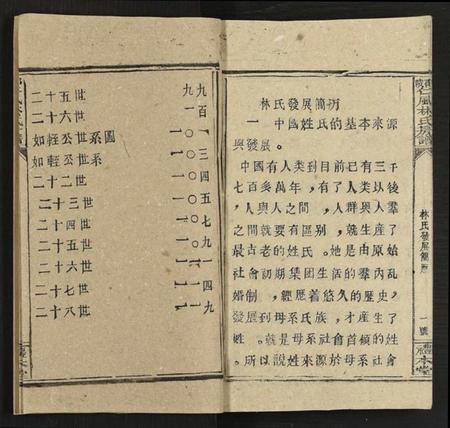 林氏發展簡析
一 中國姓氏的基本來源
與發展。
中國有人类到目前已有三千
七百多萬年，有了人类以後
，人與人之間，人群與人羣
之間就要有區别，就生產了
最古老的姓氏。她是由原始
社會初期集团生活的羣内乱
婚制，經歷着悠久的歷史，
發展到母系氏族，才產生了
姓。就是母系社會首領的姓
。所以說姓來源於母系社會
仁風林氏族譜
林氏發展簡析
一號
禮本堂
二十五世 九九
二十六世 一百
如輊公世系圖 〇一
如輊公世系 〇三
二十二世 〇四
二十三世 〇五
二十四世 〇七
二十五世 〇九
二十六世 一一
二十七世 一四
二十八世 一九